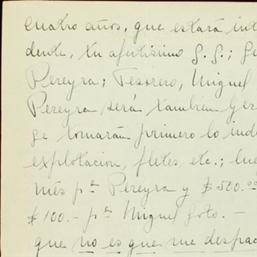 cuatro años, que estará int
dente, tu afmtísimo S. S.; Ge
Pereyra; Tesorero, Miguel
Pereyra será tambien y er
se tomarán primero lo ind
explotacion, fletes etc.; lue
més pª Pereyra y $500.00
$100.- pª Miguel Soto. -
que no es que me despac